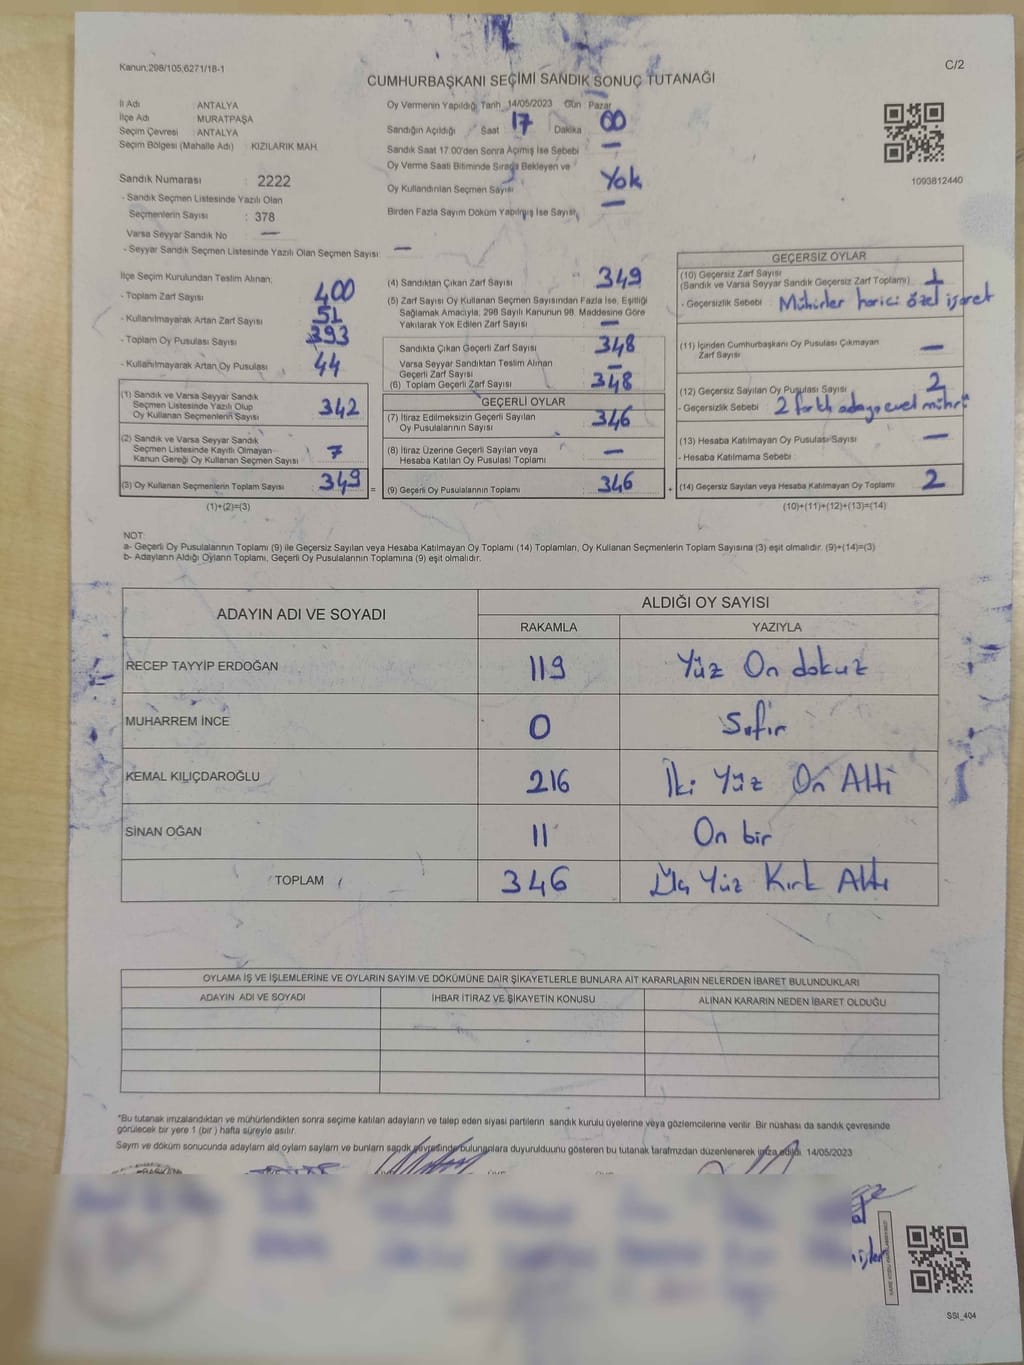 Kanun:298/105,6271/18-1
C/2
CUMHURBAŞKANI SEÇİMİ SANDIK SONUÇ TUTANAĞI
İl Adı ANTALYA
İlçe Adı MURATPAŞA
Seçim Çevresi : ANTALYA
Seçim Bölgesi (Mahalle Adı) KIZILARIK MAH.
Sandık Numarası : 2222
- Sandık Seçmen Listesinde Yazılı Olan
Seçmenlerin Sayısı : 378
Varsa Seyyar Sandık No —
- Seyyar Sandık Seçmen Listesinde Yazılı Olan Seçmen Sayısı: —
Oy Vermenin Yapıldığı Tarih 14/05/2023 Gün : Pazar
Sandığın Açıldığı Saat 17 Dakika 00
Sandık Saat 17:00'den Sonra Açılmış İse Sebebi —
Oy Verme Saati Bitiminde Sırada Bekleyen ve
Oy Kullandırılan Seçmen Sayısı Yok
Birden Fazla Sayım Döküm Yapılmış İse Sayısı —
1093812440
İlçe Seçim Kurulundan Teslim Alınan;
- Toplam Zarf Sayısı 400
- Kullanılmayarak Artan Zarf Sayısı 51
- Toplam Oy Pusulası Sayısı 393
- Kullanılmayarak Artan Oy Pusulası 44
(1) Sandık ve Varsa Seyyar Sandık
Seçmen Listesinde Yazılı Olup
Oy Kullanan Seçmenlerin Sayısı 342
(2) Sandık ve Varsa Seyyar Sandık
Seçmen Listesinde Kayıtlı Olmayan
Kanun Gereği Oy Kullanan Seçmen Sayısı 7
(3) Oy Kullanan Seçmenlerin Toplam Sayısı 349 =
(1)+(2)=(3)
(4) Sandıktan Çıkan Zarf Sayısı : 349
(5) Zarf Sayısı Oy Kullanan Seçmen Sayısından Fazla İse, Eşitliği
Sağlamak Amacıyla; 298 Sayılı Kanunun 98. Maddesine Göre
Yakılarak Yok Edilen Zarf Sayısı : —
Sandıkta Çıkan Geçerli Zarf Sayısı 348
Varsa Seyyar Sandıktan Teslim Alınan
Geçerli Zarf Sayısı —
(6) Toplam Geçerli Zarf Sayısı 348
GEÇERLİ OYLAR
(7) İtiraz Edilmeksizin Geçerli Sayılan
Oy Pusulalarının Sayısı 346
(8) İtiraz Üzerine Geçerli Sayılan veya
Hesaba Katılan Oy Pusulası Toplamı —
(9) Geçerli Oy Pusulalarının Toplamı 346 +
GEÇERSİZ OYLAR
(10) Geçersiz Zarf Sayısı
(Sandık ve Varsa Seyyar Sandık Geçersiz Zarf Toplamı) 1
- Geçersizlik Sebebi Mühürler harici özel işaret
(11) İçinden Cumhurbaşkanı Oy Pusulası Çıkmayan
Zarf Sayısı —
(12) Geçersiz Sayılan Oy Pusulası Sayısı 2
- Geçersizlik Sebebi : 2 farklı adaya evet mührü
(13) Hesaba Katılmayan Oy Pusulası Sayısı —
- Hesaba Katılmama Sebebi :
(14) Geçersiz Sayılan veya Hesaba Katılmayan Oy Toplamı 2
(10)+(11)+(12)+(13)=(14)
NOT:
a- Geçerli Oy Pusulalarının Toplamı (9) ile Geçersiz Sayılan veya Hesaba Katılmayan Oy Toplamı (14) Toplamları, Oy Kullanan Seçmenlerin Toplam Sayısına (3) eşit olmalıdır. (9)+(14)=(3)
b- Adayların Aldığı Oyların Toplamı, Geçerli Oy Pusulalarının Toplamına (9) eşit olmalıdır.
ADAYIN ADI VE SOYADI ALDIĞI OY SAYISI
RAKAMLA YAZIYLA
RECEP TAYYİP ERDOĞAN 119 Yüz On dokuz
MUHARREM İNCE 0 Sıfır
KEMAL KILIÇDAROĞLU 216 İki Yüz On Altı
SİNAN OĞAN 11 On bir
TOPLAM 346 Üç Yüz Kırk Altı
OYLAMA İŞ VE İŞLEMLERİNE VE OYLARIN SAYIM VE DÖKÜMÜNE DAİR ŞİKAYETLERLE BUNLARA AİT KARARLARIN NELERDEN İBARET BULUNDUKLARI
ADAYIN ADI VE SOYADI İHBAR İTİRAZ VE ŞİKAYETİN KONUSU ALINAN KARARIN NEDEN İBARET OLDUĞU
*Bu tutanak imzalandıktan ve mühürlendikten sonra seçime katılan adayların ve talep eden siyasi partilerin sandık kurulu üyelerine veya gözlemcilerine verilir. Bir nüshası da sandık çevresinde
görülecek bir yere 1 (bir ) hafta süreyle asılır.
Sayım ve döküm sonucunda adayların aldı oyların sayların ve bunların sandk çevresinde bulunanlara duyurulduunu gösteren bu tutanak tarafmzdan düzenlenerek imza edildi. 14/05/2023
SSI_404